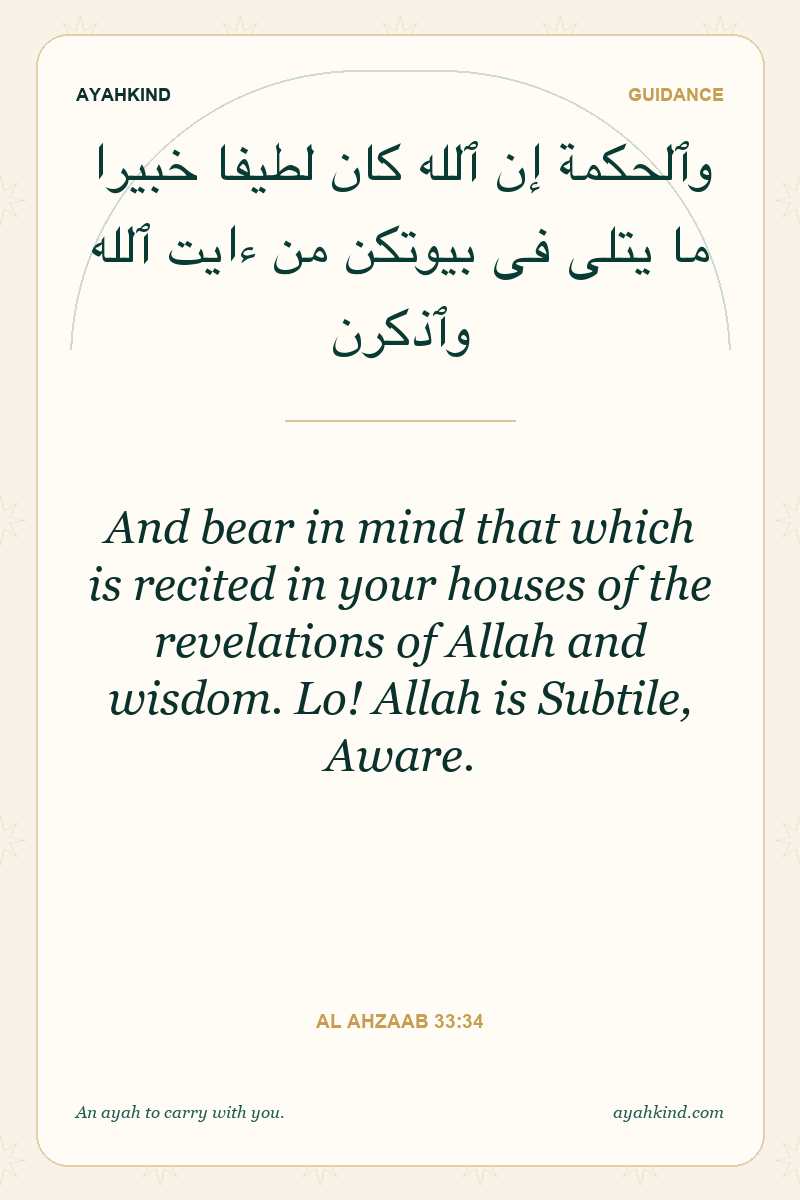 AYAHKIND
GUIDANCE
وٱلحكمة إن ٱلله كان لطيفا خبيرا
ما يتلى فى بيوتكن من ءايت ٱلله
وٱذكرن
And bear in mind that which
is recited in your houses of the
revelations of Allah and
wisdom. Lo! Allah is Subtile,
Aware.
AL AHZAAB 33:34
An ayah to carry with you.
ayahkind.com